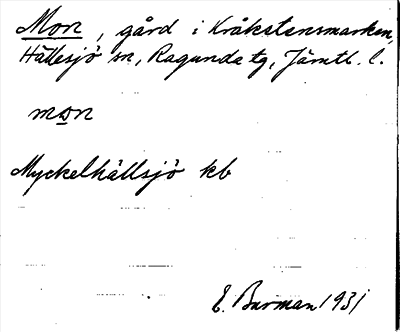 Mon, gård i Kråkstensmarken,
Hällesjö sn, Ragunda tg, Jämtl. l.
mɷn
Myckelhällsjö kb
E. Burman 1931